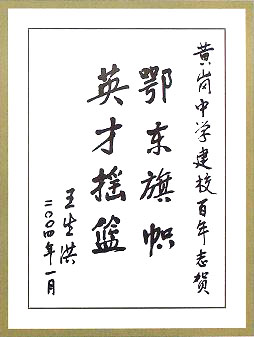 黄岗中学建校百年志贺
鄂东旗帜
英才摇篮
王生洪
二〇〇四年一月